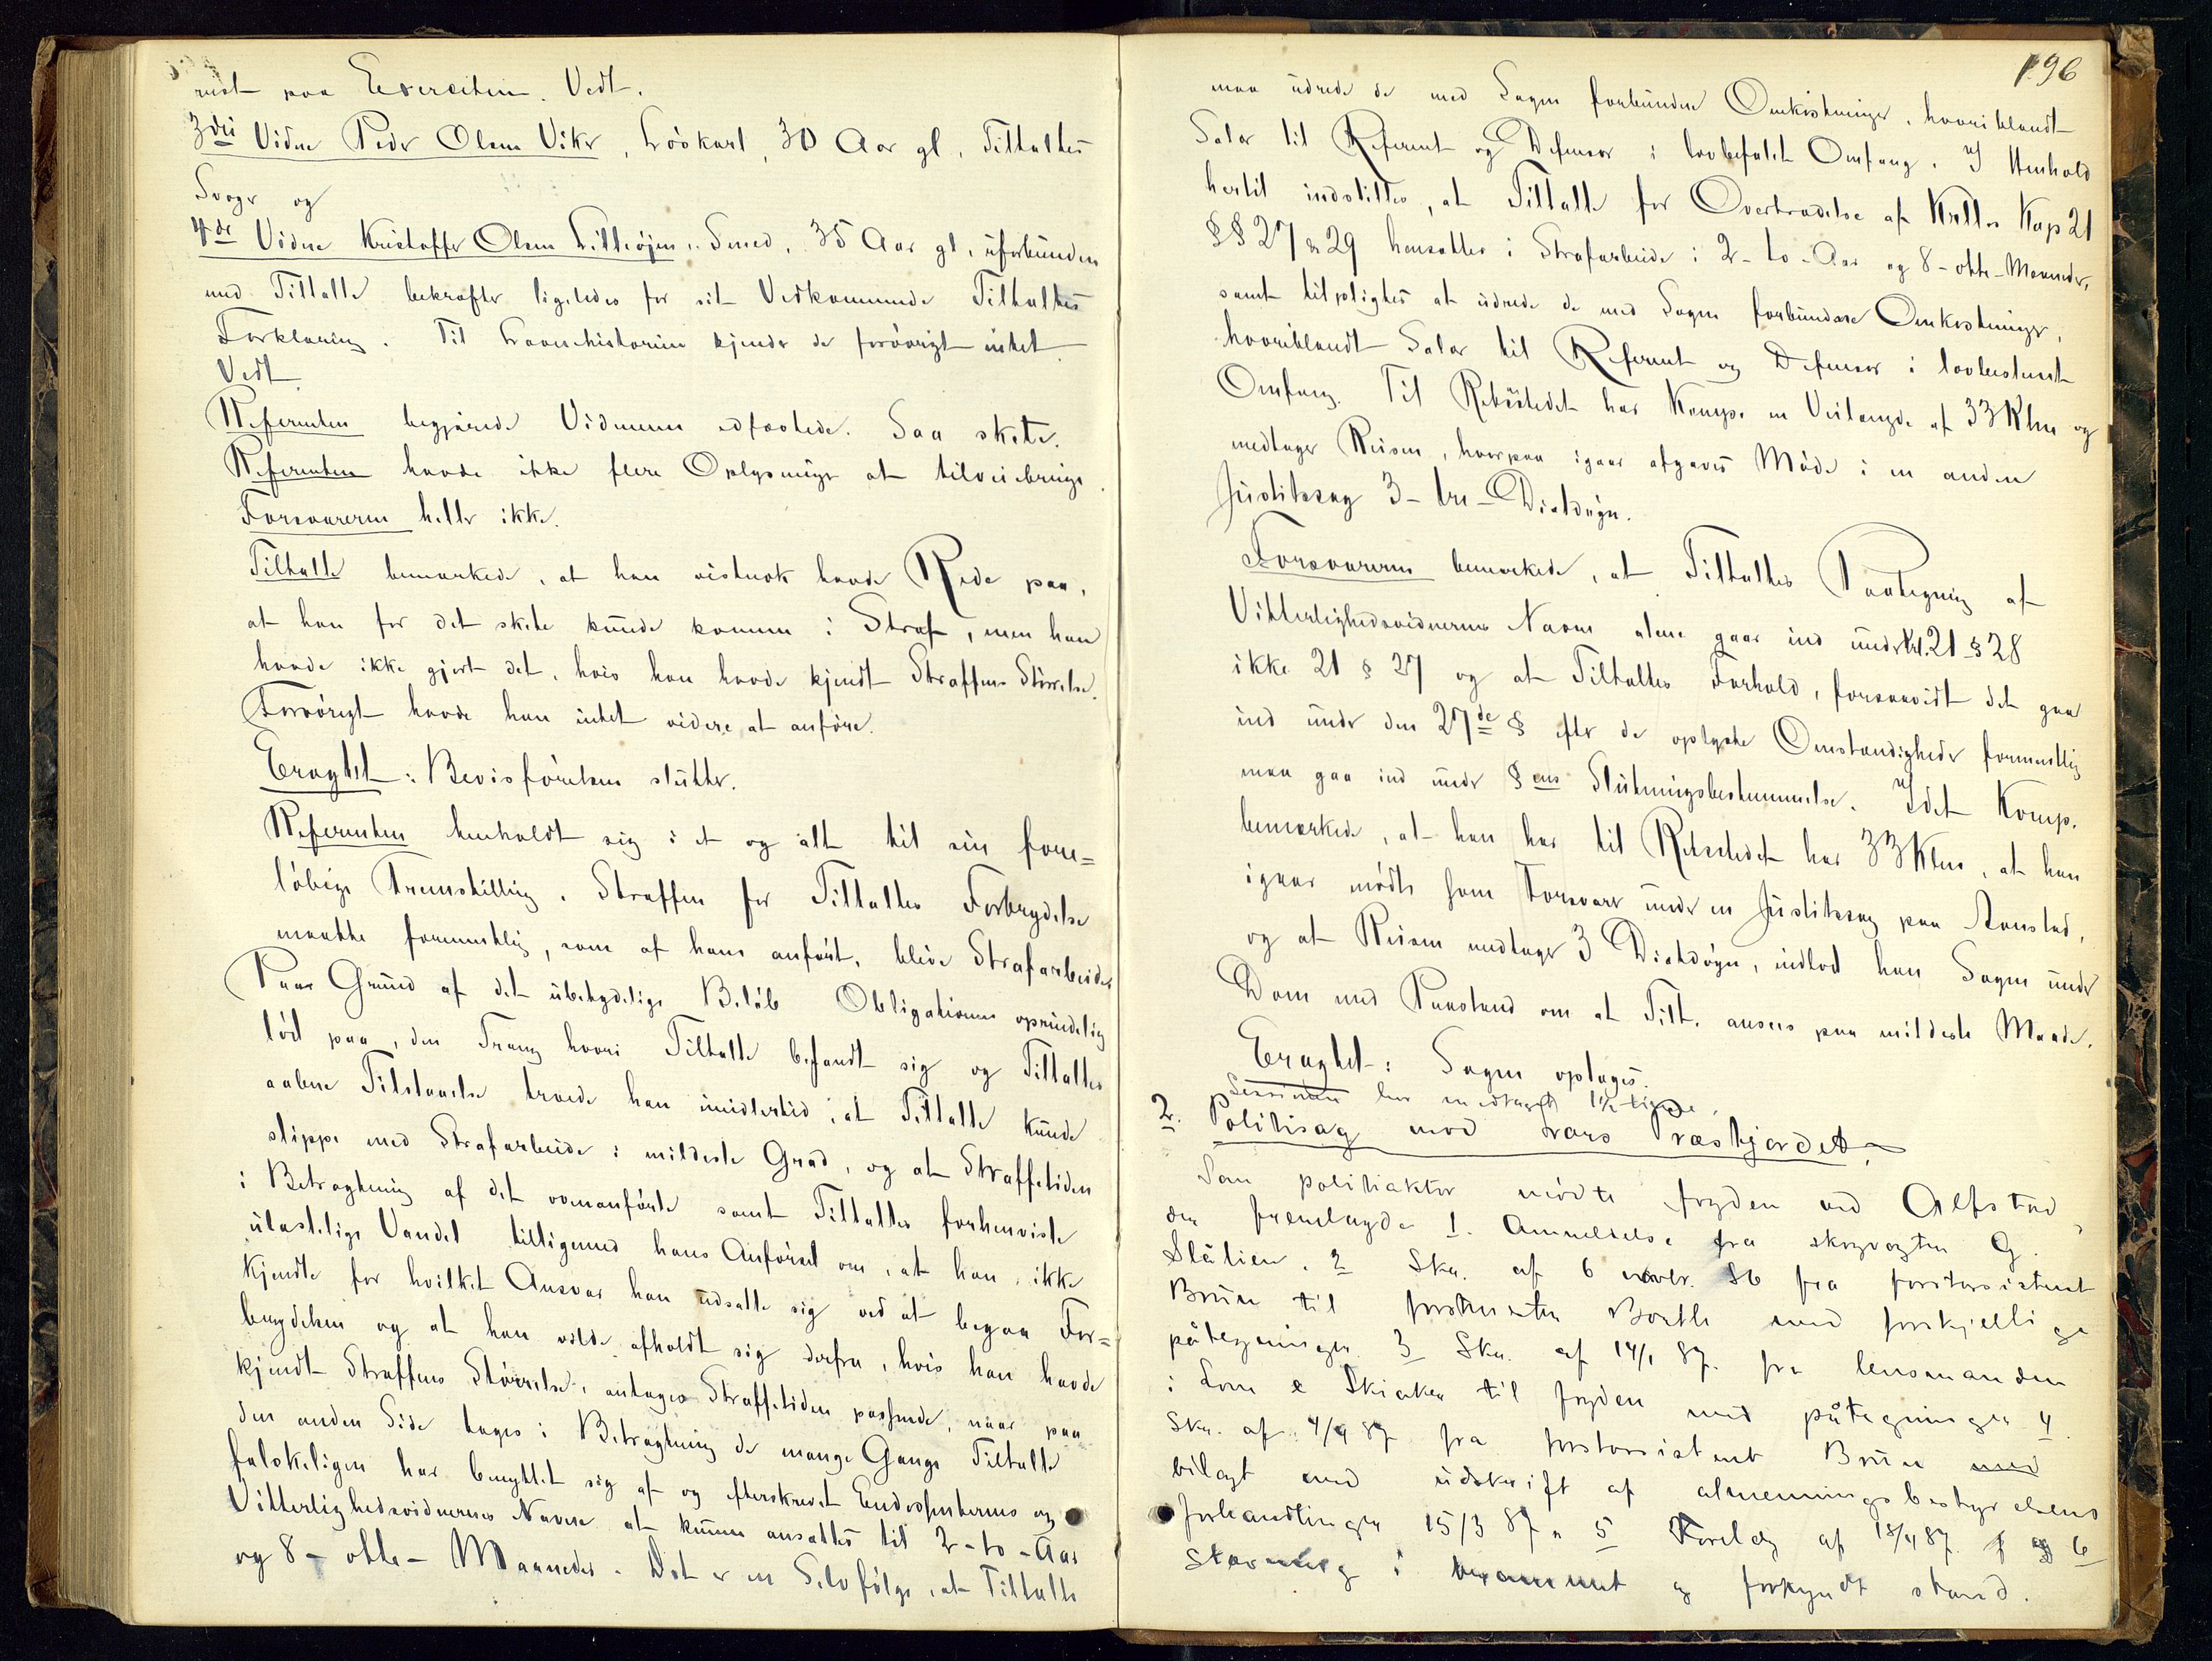 rist paa Exercitien. Vedt.
3die Vidne Peder Olsen Viker, Løskarl, 30 Aar gl, Tiltaltes
Svoger og
4de Vidne Kristoffer Olsen Lilleøjen, Smed, 35 Aar gl, uforbunden
med Tiltalte bekræfter ligeledes for sit Vedkommende Tiltaltes
Forklaring. Til Laanehistorien kjender de forøvrigt intet.
Vedt.
Referenten begjærede Vidnerne edfæstede. Saa skete.
Referenten havde ikke flere Oplysninger at tilveiebringe.
Forsvareren heller ikke.
Tiltalte bemærkede, at han vistnok havde Rede paa,
at han for det skete kunde komme i Straf, men han
havde ikke gjort det, hvis han havde kjendt Straffens Størrelse.
Forøvrigt havde han intet videre at anføre.
Eragtet: Bevisførelsen slutter.
Referenten henholdt sig i et og alt til sin fore=
løbige Fremstilling. Straffen for Tiltaltes Forbrydelse
maatte formentlig, som af ham anført, blive Strafarbeide.
Paa Grund af det ubetydelige Beløb Obligationen oprindelig
lød paa, den Trang hvori Tiltalte befandt sig og Tiltaltes
aabne Tilstaaelse troede han imidlertid, at Tiltalte kunde
slippe med Strafarbeide i mildeste Grad, og at Straffetiden
i Betragtning af det ovenanførte samt Tiltaltes forhenviste
ulastelige Vandel tilligemed hans Anførsel om, at han ikke
kjendte for hvilket Ansvar han udsatte sig ved at begaa For=
brydelsen og at han vilde afholdt sig derfra, hvis han havde
kjendt Straffens Størrelse, antages Straffetiden passende, naar paa
den anden Side tages i Betragtning de mange Gange Tiltalte
falskeligen har benyttet sig af og efterskrevet Endossenternes og
Vitterlighedsvidnernes Navne at kunne ansættes til 2 - to - Aar
og 8 - otte - Maaneder. Det er en Selvfølge, at Tiltalte
196
maa udrede de med Sagen forbundne Omkostninger, hvoriblandt
Salær til Referent og Defensor i lovbefalet Omfang. I Henhold
hertil indstilles, at Tiltalte for Overtrædelse af Krlls Kap 21
§§ 27 & 29 hensættes i Strafarbeide i 2 - to - Aar og 8 - otte - Maaneder,
samt tilpligtes at udrede de med Sagen forbundne Omkostninger,
hvoriblandt Salær til Referent og Defensor i lovbestemt
Omfang. Til Retsstedet har Komp. en Veilængde af 33 Klm og
medtager Reisen, hvorpaa igaar afgaves Møde i en anden
Justitssag 3 - tre - Diætdøgn.
Forsvareren bemærkede, at Tiltaltes Paategning af
Vitterlighedsvidnernes Navne alene gaar ind under Krl. 21 § 28
ikke 21 § 27 og at Tiltaltes Forhold, forsaavidt det gaar
ind under den 27de § efter de oplyste Omstændigheder formentlig
maa gaa ind under §ens Slutningsbestemmelse. Idet Komp.
bemærkede, at han har til Retsstedet har 33 Klm, at han
igaar mødte som Forsvarer under en Justitssag paa Aanstad,
og at Reisen medtager 3 Diætdøgn, indlod han Sagen under
Dom med Paastand om at Tilt. ansees paa mildeste Maade.
Eragtet: Sagen optages.
Sessionen har medtaget 1½ time.
2. Politisag mod Lars Præstgjerdet.
Som politiaktor mødte fogden ved Alfstad,
der fremlagde 1. Anmeldelse fra skogvogter G.
Slålien. 2 Skr. af 6 novbr. 86 fra forstassistent
Bruun til forstmester Borthe med forskjellige
påtegninger. 3 Skr. af 14/1 87. fra lensmanden
i Lom & Skiaker til fogden med påtegninger 4
Skr. af 4/4 87 fra forstassistent Bruun med
bilagt med udskrift af almenningsbestyrelsens
forhandlinger 15/3 87. 5 Forelæg af 18/4 87. og 6
Stævning i berammet og forkyndt stand.